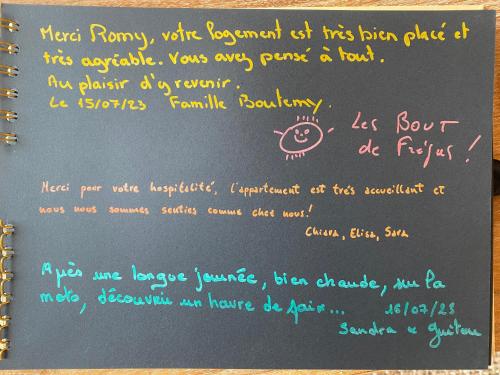 Merci Romy, votre logement est très bien placé et
très agréable. Vous avez pensé à tout.
Au plaisir d'y revenir.
Le 15/07/23 Famille Boutemy.
Les BOUT
de Fréjus !
Merci pour votre hospitalité, l'appartement est très accueillant et
nous nous sommes senties comme chez nous!
Chiara, Elisa, Sara
Après une longue journée, bien chaude, sur la
moto, découvrir un havre de paix...
16/07/23
Sandra &